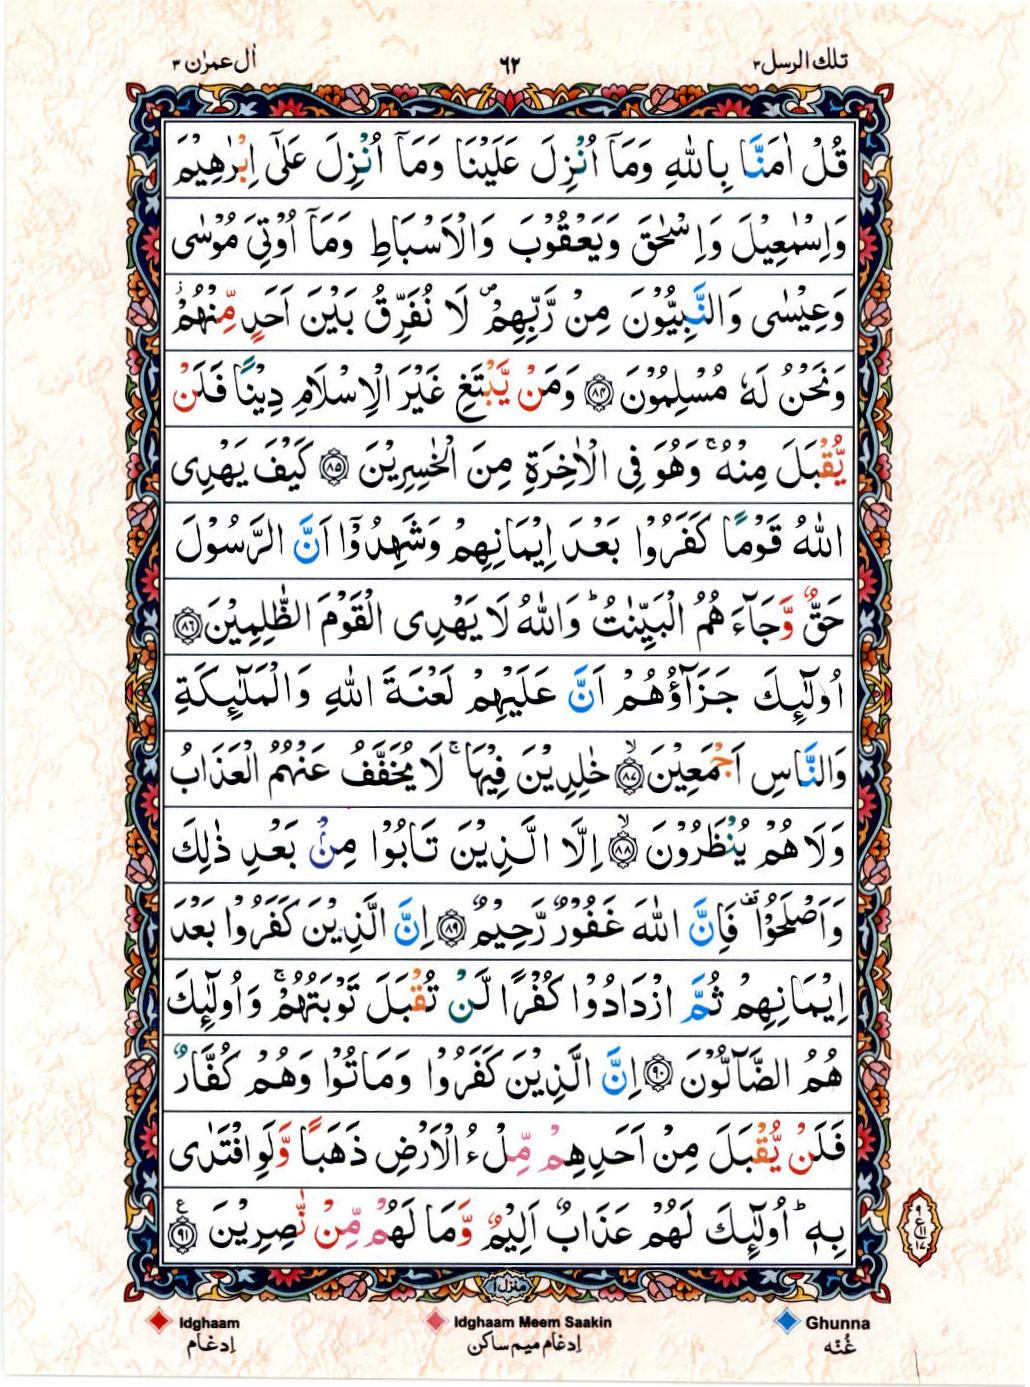 تلك الرسل ٣
٦٢
اٰل عمرٰن ٣
قُلْ اٰمَنَّا بِاللّٰهِ وَمَاۤ اُنْزِلَ عَلَيْنَا وَمَاۤ اُنْزِلَ عَلٰٓى اِبْرٰهِيْمَ
وَاِسْمٰعِيْلَ وَاِسْحٰقَ وَيَعْقُوْبَ وَالْاَسْبَاطِ وَمَاۤ اُوْتِيَ مُوْسٰى
وَعِيْسٰى وَالنَّبِيُّوْنَ مِنْ رَّبِّهِمْ ۪ لَا نُفَرِّقُ بَيْنَ اَحَدٍ مِّنْهُمْ ۫
وَنَحْنُ لَهٗ مُسْلِمُوْنَ ﴿٨٤﴾ وَمَنْ يَّبْتَغِ غَيْرَ الْاِسْلَامِ دِيْنًا فَلَنْ
يُّقْبَلَ مِنْهُ ۚ وَهُوَ فِى الْاٰخِرَةِ مِنَ الْخٰسِرِيْنَ ﴿٨٥﴾ كَيْفَ يَهْدِى
اللّٰهُ قَوْمًا كَفَرُوْا بَعْدَ اِيْمَانِهِمْ وَشَهِدُوْۤا اَنَّ الرَّسُوْلَ
حَقٌّ وَّجَآءَهُمُ الْبَيِّنٰتُ ؕ وَاللّٰهُ لَا يَهْدِى الْقَوْمَ الظّٰلِمِيْنَ ﴿٨٦﴾
اُولٰٓئِكَ جَزَآؤُهُمْ اَنَّ عَلَيْهِمْ لَعْنَةَ اللّٰهِ وَالْمَلٰٓئِكَةِ
وَالنَّاسِ اَجْمَعِيْنَ ﴿٨٧﴾ ۙ خٰلِدِيْنَ فِيْهَا ۚ لَا يُخَفَّفُ عَنْهُمُ الْعَذَابُ
وَلَا هُمْ يُنْظَرُوْنَ ﴿٨٨﴾ ۙ اِلَّا الَّذِيْنَ تَابُوْا مِنْۢ بَعْدِ ذٰلِكَ
وَاَصْلَحُوْا ۟ فَاِنَّ اللّٰهَ غَفُوْرٌ رَّحِيْمٌ ﴿٨٩﴾ اِنَّ الَّذِيْنَ كَفَرُوْا بَعْدَ
اِيْمَانِهِمْ ثُمَّ ازْدَادُوْا كُفْرًا لَّنْ تُقْبَلَ تَوْبَتُهُمْ ۚ وَاُولٰٓئِكَ
هُمُ الضَّآلُّوْنَ ﴿٩٠﴾ اِنَّ الَّذِيْنَ كَفَرُوْا وَمَاتُوْا وَهُمْ كُفَّارٌ
فَلَنْ يُّقْبَلَ مِنْ اَحَدِهِمْ مِّلْءُ الْاَرْضِ ذَهَبًا وَّلَوِ افْتَدٰى
بِهٖ ؕ اُولٰٓئِكَ لَهُمْ عَذَابٌ اَلِيْمٌ وَّمَا لَهُمْ مِّنْ نّٰصِرِيْنَ ﴿٩١﴾ ع
٩
ع
١١
١٧
منزل ١
Idghaam
اِدغام
Idghaam Meem Saakin
اِدغام میم ساکن
Ghunna
غُنّه